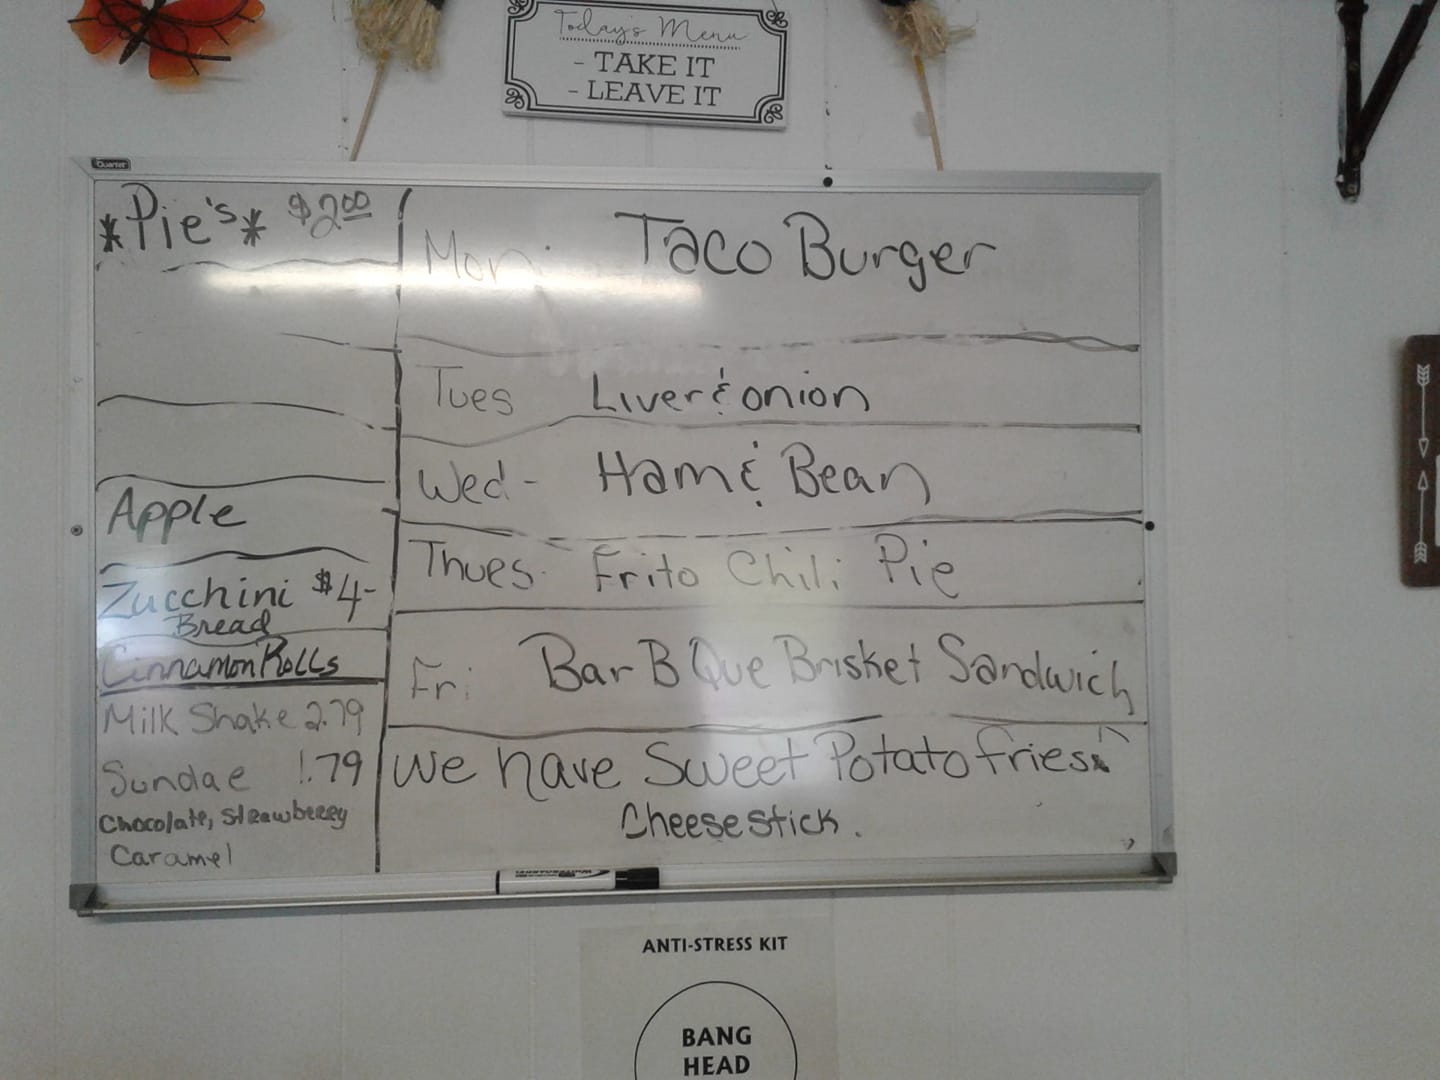 Today's Menu
- TAKE IT
- LEAVE IT
Quartet
*Pie's* $2.00
Apple
Zucchini $4-
Bread
Cinnamon Rolls
Milk Shake 2.79
Sundae 1.79
Chocolate, Strawberry
Caramel
Mon. Taco Burger
Tues Liver & onion
Wed - Ham & Bean
Thues. Frito Chili Pie
Fri Bar B Que Brisket Sandwich
We have Sweet Potato fries
Cheese stick.
ANTI-STRESS KIT
BANG
HEAD